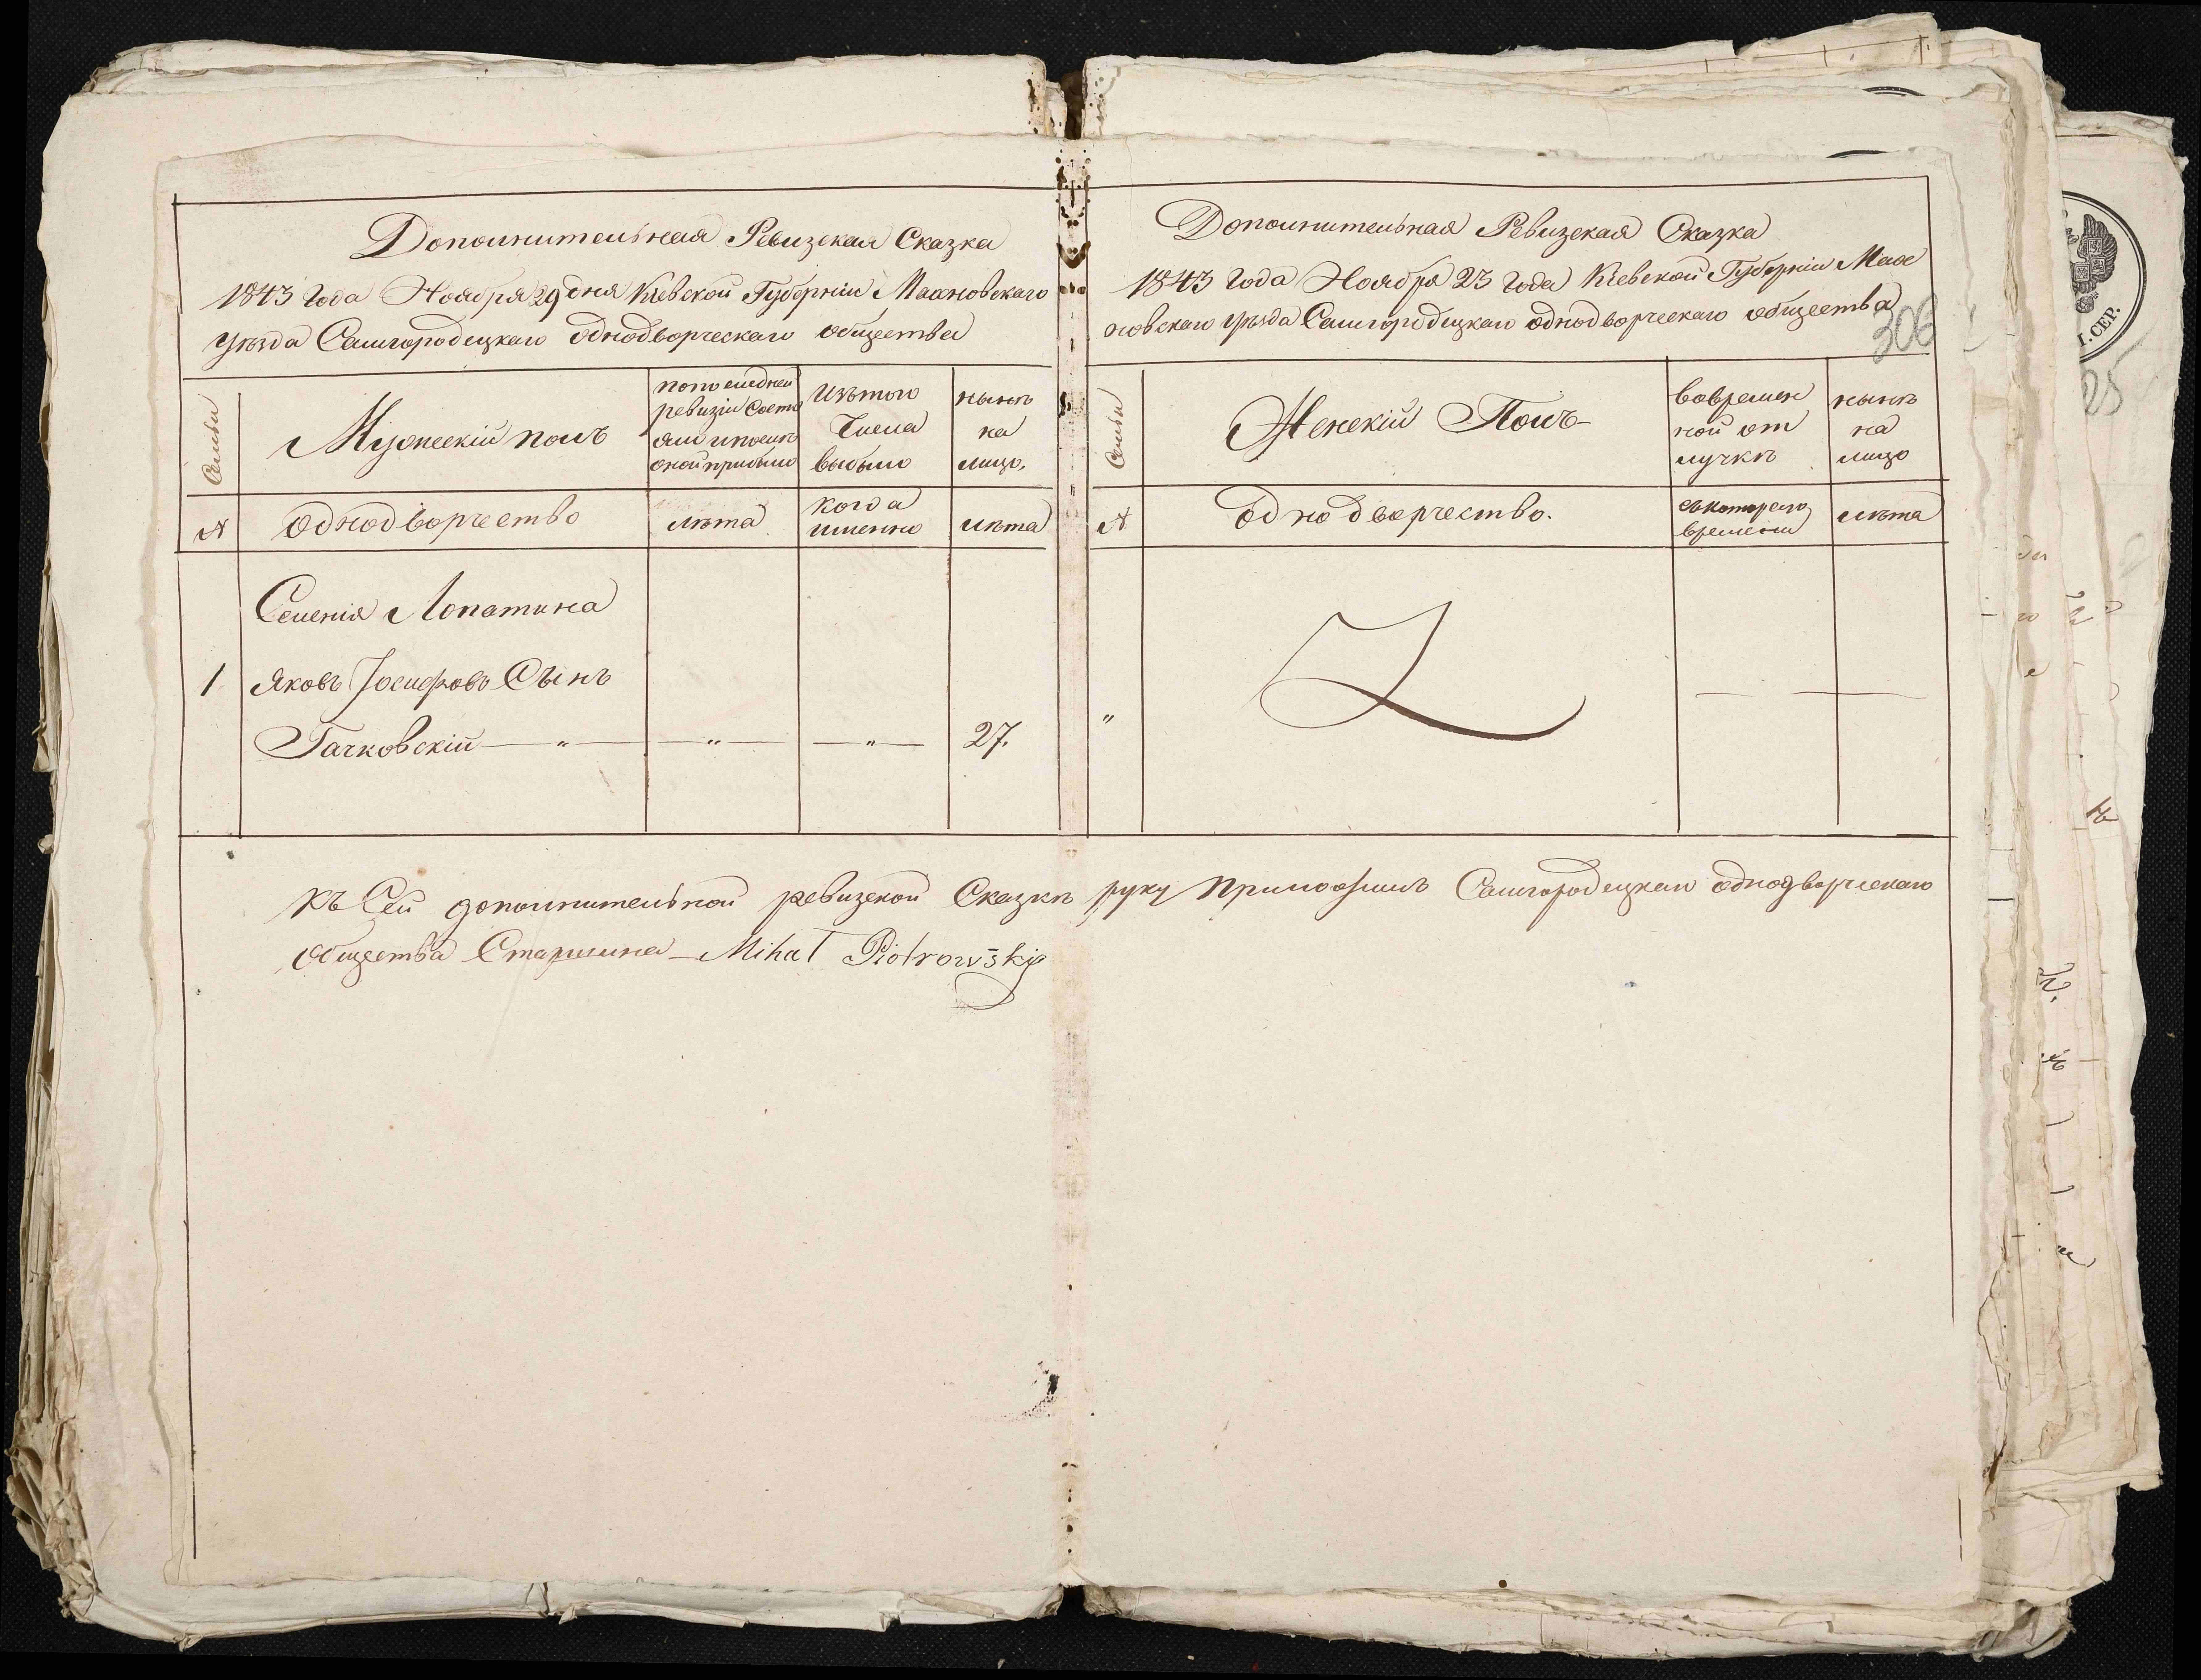 Дополнительная Ревизская Сказка
1843 Года Ноября 29 дня Кіевской Губерніи Махновскаго
уѣзда Самгородецкаго однодворческаго общества
Семьи
Мужескій полъ
По последней
ревизіи состо
яли и после
оной прибыло
Изъ того
Числа
выбыло
нынѣ
на
лицо.
№
Однодворчество
лѣта
когда
именно
лѣта
Селенія Лопатина
1
Яковъ Іосифовъ Сынъ
Гачковскій — „ — — „ — — „ — 27.
Дополнительная Ревизская Сказка
1843 Года Ноября 23 Года Кіевской Губерніи Мах
новскаго уѣзда Самгородецкаго однодворческаго общества
306
Семьи
Женскій Полъ
Вовремен
ной от
лучкѣ
нынѣ
на
лицо
№
Однодворчество.
съкоторого
времени
лѣта
„
— —
Къ Сей дополнительной ревизской Сказкѣ руку Приложилъ Самгородецкаго однодворческаго
общества Старшина Mihał Piotrowski
І.СЕР.
25